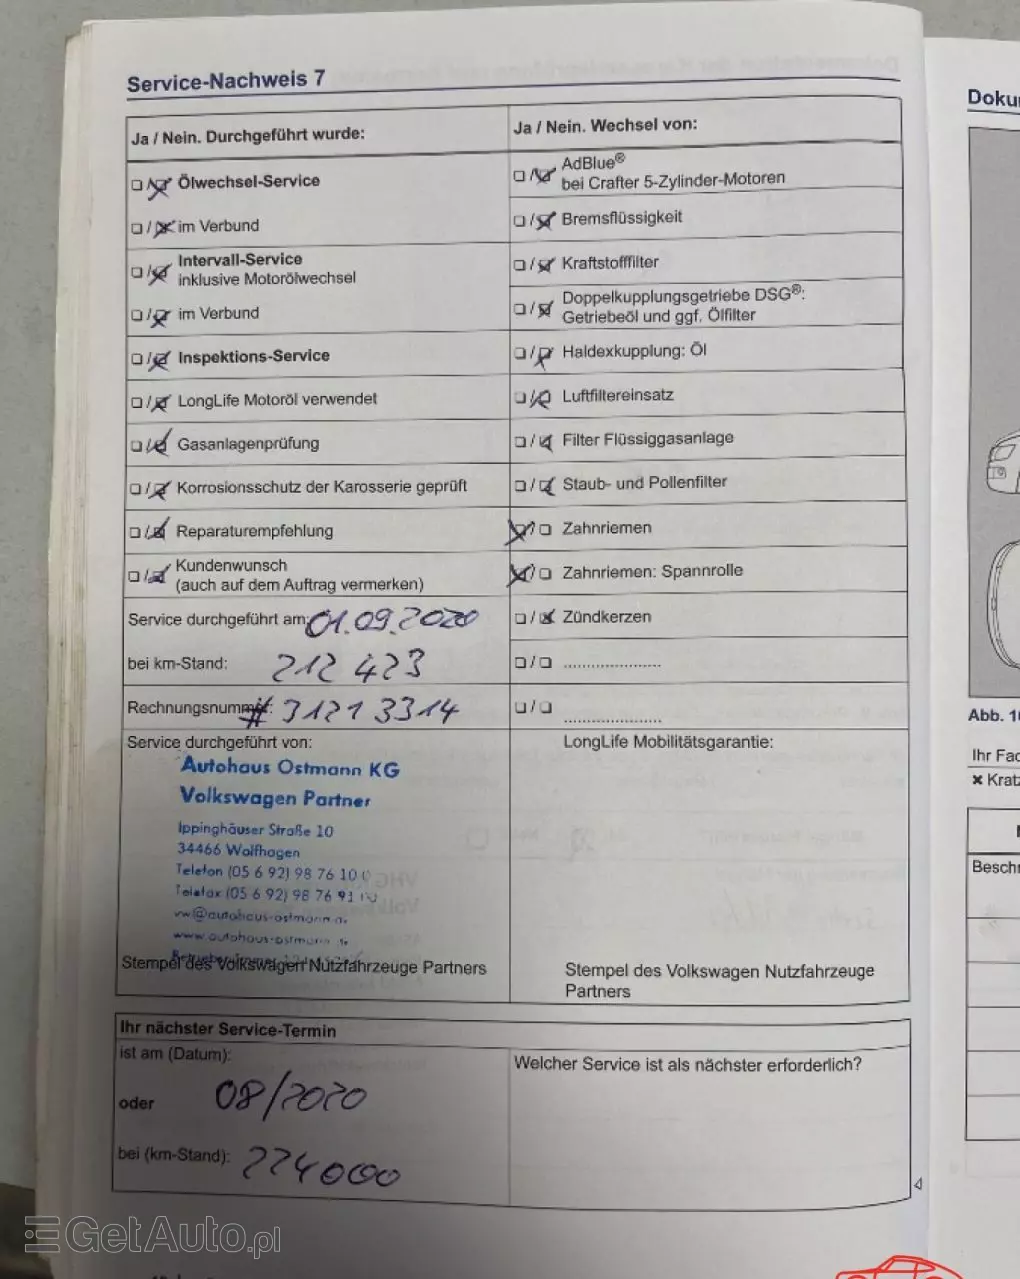 Service-Nachweis 7
Ja / Nein. Durchgeführt wurde:
Ölwechsel-Service
im Verbund
Intervall-Service
inklusive Motorölwechsel
im Verbund
Inspektions-Service
LongLife Motoröl verwendet
Gasanlagenprüfung
Korrosionsschutz der Karosserie geprüft
Reparaturempfehlung
Kundenwunsch
(auch auf dem Auftrag vermerken)
Service durchgeführt am: 01.09.2020
bei km-Stand: 212 423
Rechnungsnummer: # 31213314
Service durchgeführt von:
Autohaus Ostmann KG
Volkswagen Partner
Ippinghäuser Straße 10
34466 Wolfhagen
Telefon (05 6 92) 98 76 10
Telefax (05 6 92) 98 76 91
vw@autohaus-ostmann.de
www.autohaus-ostmann.de
Stempel des Volkswagen Nutzfahrzeuge Partners
Ja / Nein. Wechsel von:
AdBlue®
bei Crafter 5-Zylinder-Motoren
Bremsflüssigkeit
Kraftstofffilter
Doppelkupplungsgetriebe DSG®:
Getriebeöl und ggf. Ölfilter
Haldexkupplung: Öl
Luftfiltereinsatz
Filter Flüssiggasanlage
Staub- und Pollenfilter
Zahnriemen
Zahnriemen: Spannrolle
Zündkerzen
LongLife Mobilitätsgarantie:
Stempel des Volkswagen Nutzfahrzeuge
Partners
Ihr nächster Service-Termin
ist am (Datum):
08/2020
oder
bei (km-Stand): 224000
Welcher Service ist als nächster erforderlich?
Doku
Abb. 1
Ihr Fac
× Kratz
Beschr
GetAuto.pl